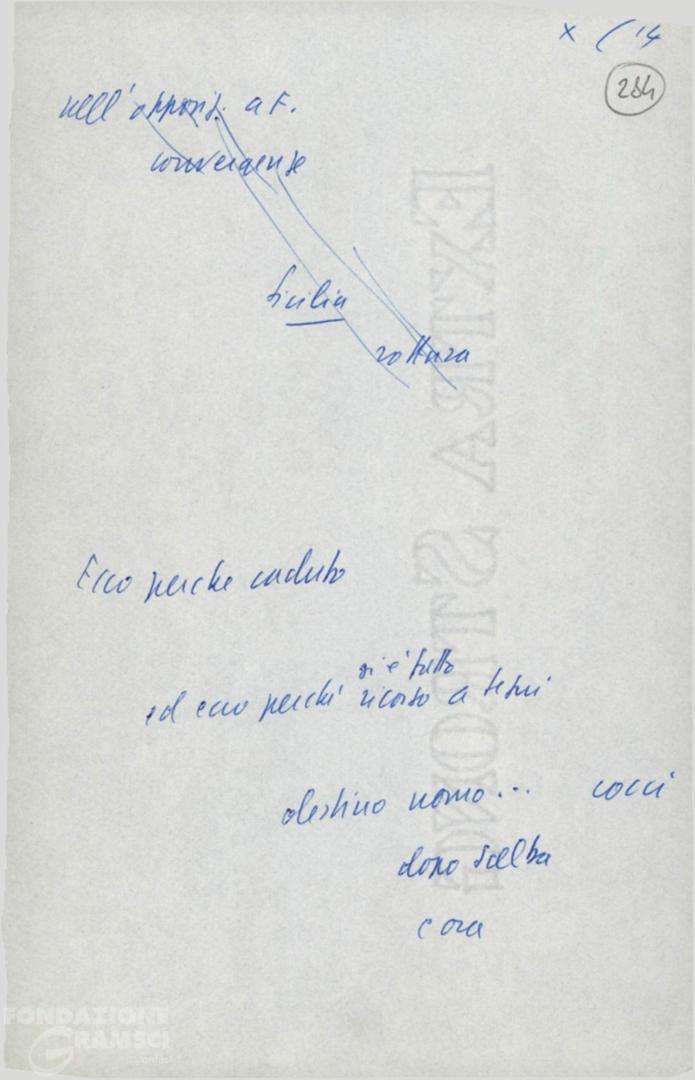 x ( '14
284
nell'opposiz. a F.
convergenze
Sicilia
rottura
Ecco perché caduto
si è fatto
ed ecco perché ricorso a Segni
destino uomo... cocci
dopo Scelba
c ora
EXTRA STRONG
FONDAZIONE
GRAMSCI